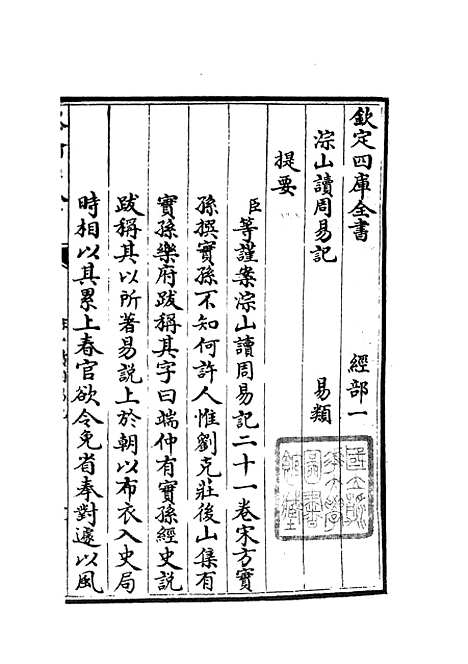 欽定四庫全書 經部一
淙山讀周易記 易類
提要
臣等謹案淙山讀周易記二十一卷宋方實
孫撰實孫不知何許人惟劉克莊後山集有
實孫樂府跋稱其字曰端仲有實孫經史說
跋稱其以所著易說上於朝以布衣入史局
時相以其累上春官欲令免省奉對遽以風